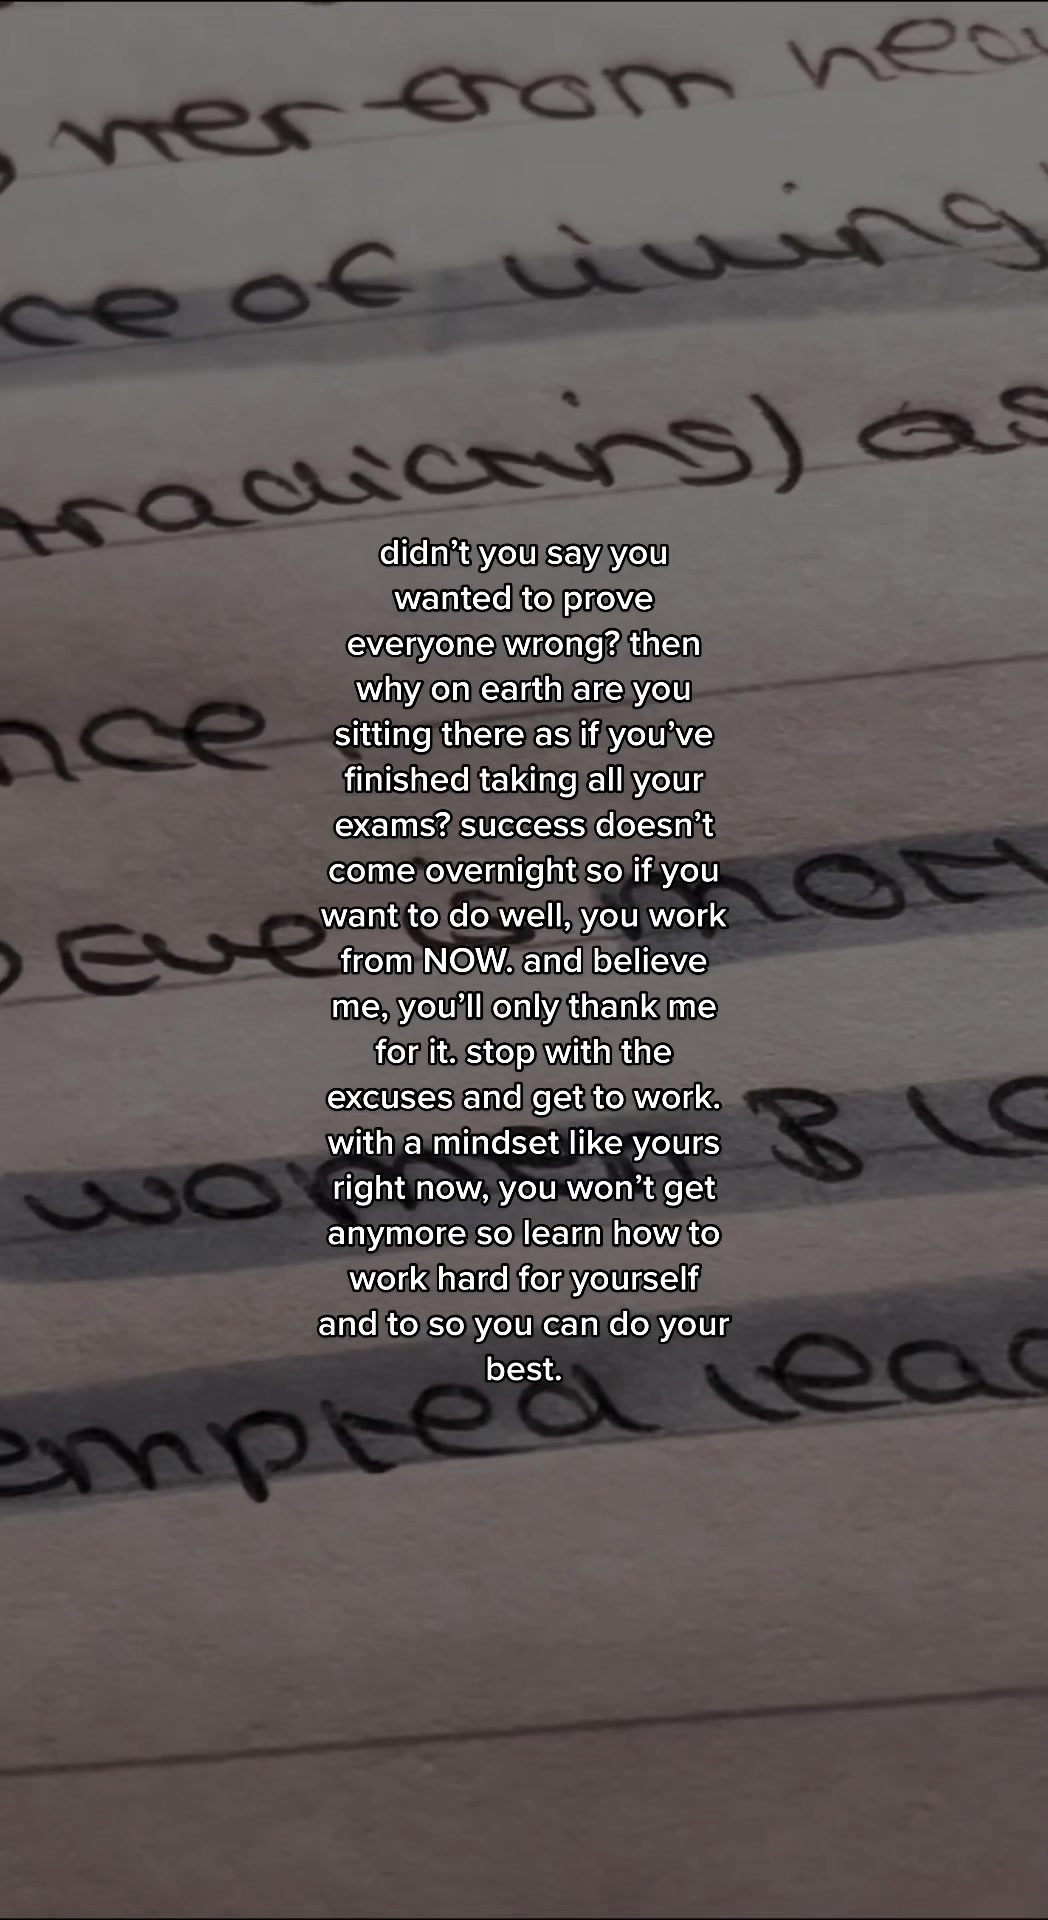 ner from hea
ce of living
tradicting) as
didn’t you say you
wanted to prove
everyone wrong? then
why on earth are you
sitting there as if you’ve
finished taking all your
exams? success doesn’t
come overnight so if you
want to do well, you work
from NOW. and believe
me, you’ll only thank me
for it. stop with the
excuses and get to work.
with a mindset like yours
right now, you won’t get
anymore so learn how to
work hard for yourself
and to so you can do your
best.
nce
Eve is mor
women B lo
empted lead